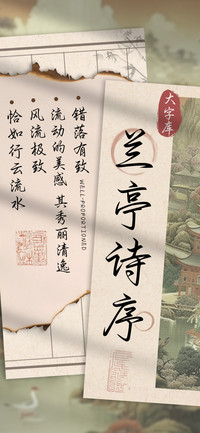 大字库
兰亭诗序
错落有致
流动的美感 其秀丽清逸
风流极致
恰如行云流水
WELL-PROPORTIONED